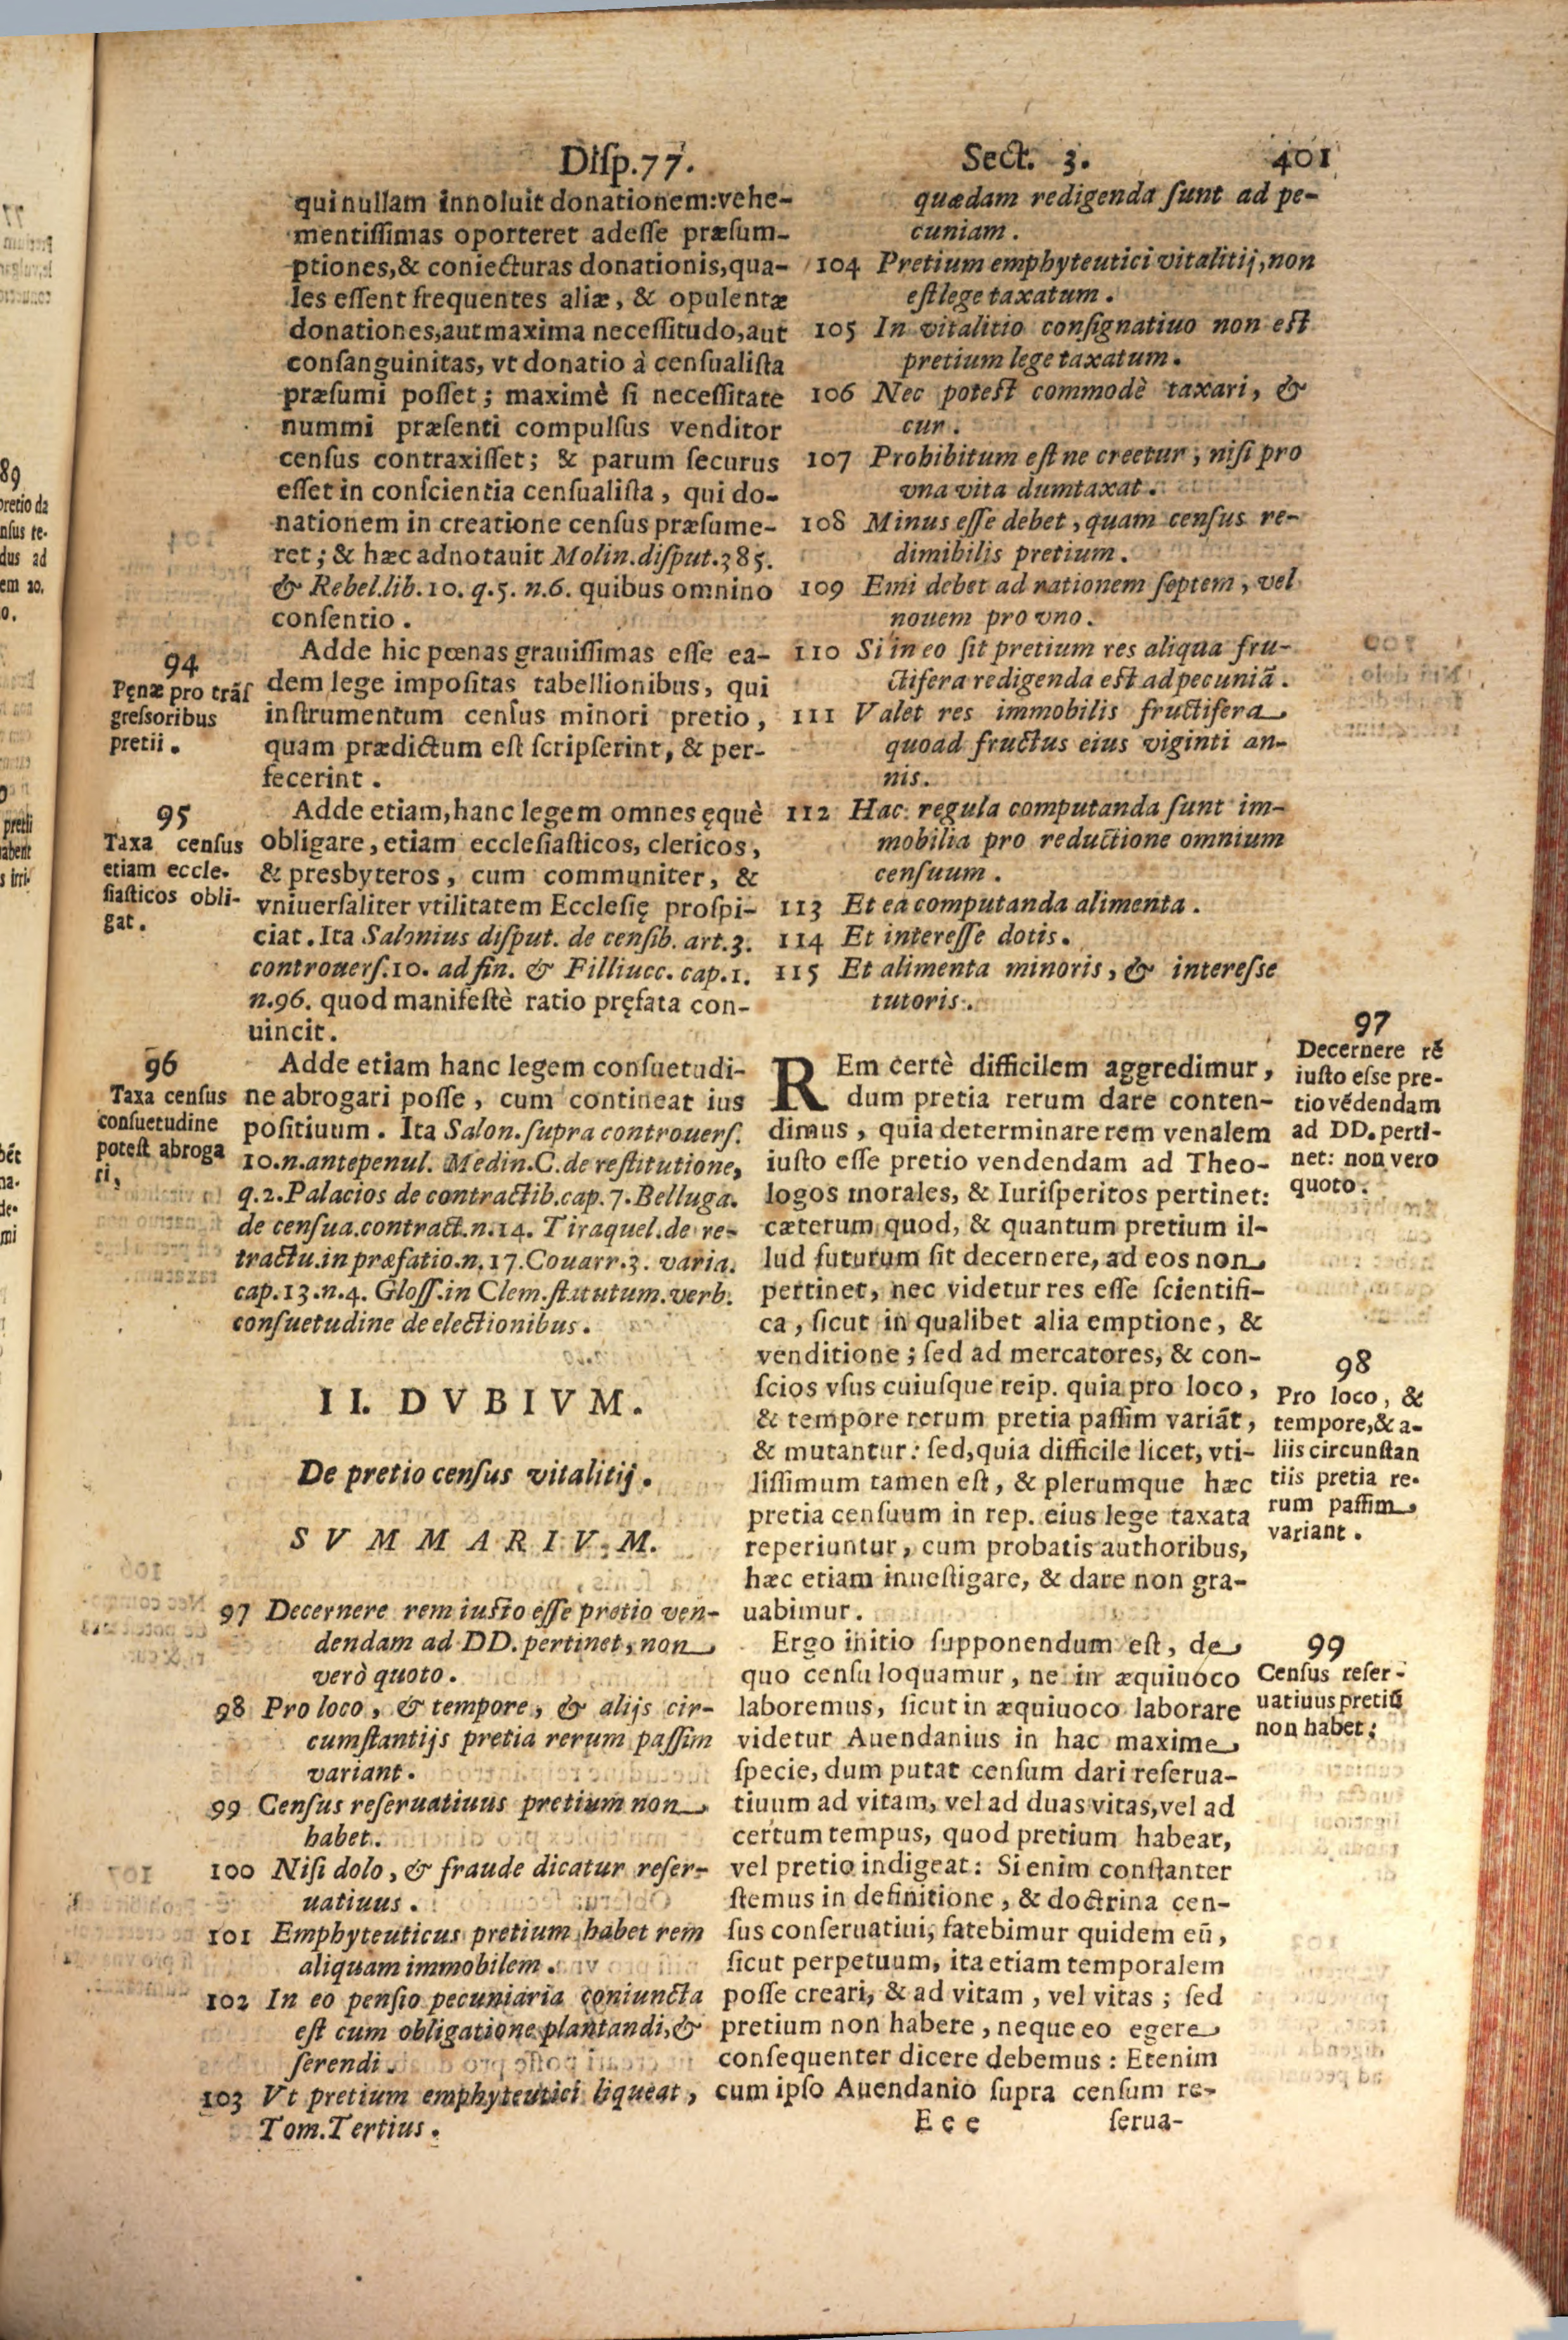 Disp.77. Sect. 3. 401
qui nullam inuoluit donationem:vehe-
mentissimas oporteret adesse præsum-
ptiones,& coniecturas donationis,qua-
les essent frequentes aliæ, & opulentæ
donationes,aut maxima necessitudo,aut
consanguinitas, vt donatio à censualista
præsumi posset; maximè si necessitate
nummi præsenti compulsus venditor
census contraxisset; & parum securus
esset in conscientia censualista, qui do-
nationem in creatione census præsume-
ret; & hæc adnotauit Molin.disput.385.
& Rebel.lib.10. q.5. n.6. quibus omnino
consentio.
94
Pęnæ pro trãs
gressoribus
pretii.
Adde hic pœnas grauissimas esse ea-
dem lege impositas tabellionibus, qui
instrumentum census minori pretio,
quam prædictum est scripserint, & per-
fecerint.
95
Taxa census
etiam eccle.
siasticos obli-
gat.
Adde etiam,hanc legem omnes ęquè
obligare, etiam ecclesiasticos, clericos,
& presbyteros, cum communiter, &
vniuersaliter vtilitatem Ecclesię prospi-
ciat. Ita Salonius disput. de censib. art.3.
controuers.10. ad fin. & Filliucc. cap.1.
n.96. quod manifestè ratio pręfata con-
uincit.
96
Taxa census
consuetudine
potest abroga
ri,
Adde etiam hanc legem consuetudi-
ne abrogari posse, cum contineat ius
positiuum. Ita Salon.supra controuers.
10.n.antepenul. Medin.C.de restitutione,
q.2.Palacios de contractib.cap.7.Belluga.
de censua.contract.n.14. Tiraquel.de re-
tractu.in præfatio.n.17.Couarr.3. varia.
cap.13.n.4. Gloss.in Clem.statutum.verb.
consuetudine de electionibus.
II. DVBIVM.
De pretio census vitalitij.
SVMMARIVM.
97 Decernere rem iusto esse pretio ven-
dendam ad DD. pertinet, non
verò quoto.
98 Pro loco, & tempore, & alijs cir-
cumstantijs pretia rerum passim
variant.
99 Census reseruatiuus pretium non
habet.
100 Nisi dolo, & fraude dicatur reser-
uatiuus.
101 Emphyteuticus pretium habet rem
aliquam immobilem.
102 In eo pensio pecuniaria coniuncta
est cum obligatione plantandi,&
serendi.
103 Vt pretium emphyteutici liqueat,
Tom.Tertius.
quædam redigenda sunt ad pe-
cuniam.
104 Pretium emphyteutici vitalitij, non
est lege taxatum.
105 In vitalitio consignatiuo non est
pretium lege taxatum.
106 Nec potest commodè taxari, &
cur.
107 Prohibitum est ne creetur, nisi pro
vna vita dumtaxat.
108 Minus esse debet, quam census re-
dimibilis pretium.
109 Emi debet ad rationem septem, vel
nouem pro vno.
110 Si in eo sit pretium res aliqua fru-
ctifera redigenda est ad pecuniã.
111 Valet res immobilis fructifera
quoad fructus eius viginti an-
nis.
112 Hac regula computanda sunt im-
mobilia pro reductione omnium
censuum.
113 Et ea computanda alimenta.
114 Et interesse dotis.
115 Et alimenta minoris, & interesse
tutoris.
REm certè difficilem aggredimur,
dum pretia rerum dare conten-
dimus, quia determinare rem venalem
iusto esse pretio vendendam ad Theo-
logos morales, & Iurisperitos pertinet:
cæterum quod, & quantum pretium il-
lud futurum sit decernere, ad eos non
pertinet, nec videtur res esse scientifi-
ca, sicut in qualibet alia emptione, &
venditione; sed ad mercatores, & con-
scios vsus cuiusque reip. quia pro loco,
& tempore rerum pretia passim variãt,
& mutantur: sed,quia difficile licet, vti-
lissimum tamen est, & plerumque hæc
pretia censuum in rep. eius lege taxata
reperiuntur, cum probatis authoribus,
hæc etiam inuestigare, & dare non gra-
uabimur.
97
Decernere rẽ
iusto esse pre-
tio vẽdendam
ad DD. perti-
net: non vero
quoto.
98
Pro loco, &
tempore,& a-
liis circunstan
tiis pretia re-
rum passim
variant.
Ergo initio supponendum est, de
quo censu loquamur, ne in æquiuoco
laboremus, sicut in æquiuoco laborare
videtur Auendanius in hac maxime
specie, dum putat censum dari reserua-
tiuum ad vitam, vel ad duas vitas,vel ad
certum tempus, quod pretium habeat,
vel pretio indigeat: Si enim constanter
stemus in definitione, & doctrina cen-
sus conseruatiui, fatebimur quidem eũ,
sicut perpetuum, ita etiam temporalem
posse creari, & ad vitam, vel vitas; sed
pretium non habere, neque eo egere
consequenter dicere debemus: Etenim
cum ipso Auendanio supra censum re-
99
Census reser-
uatiuus pretiũ
non habet:
Eee serua-